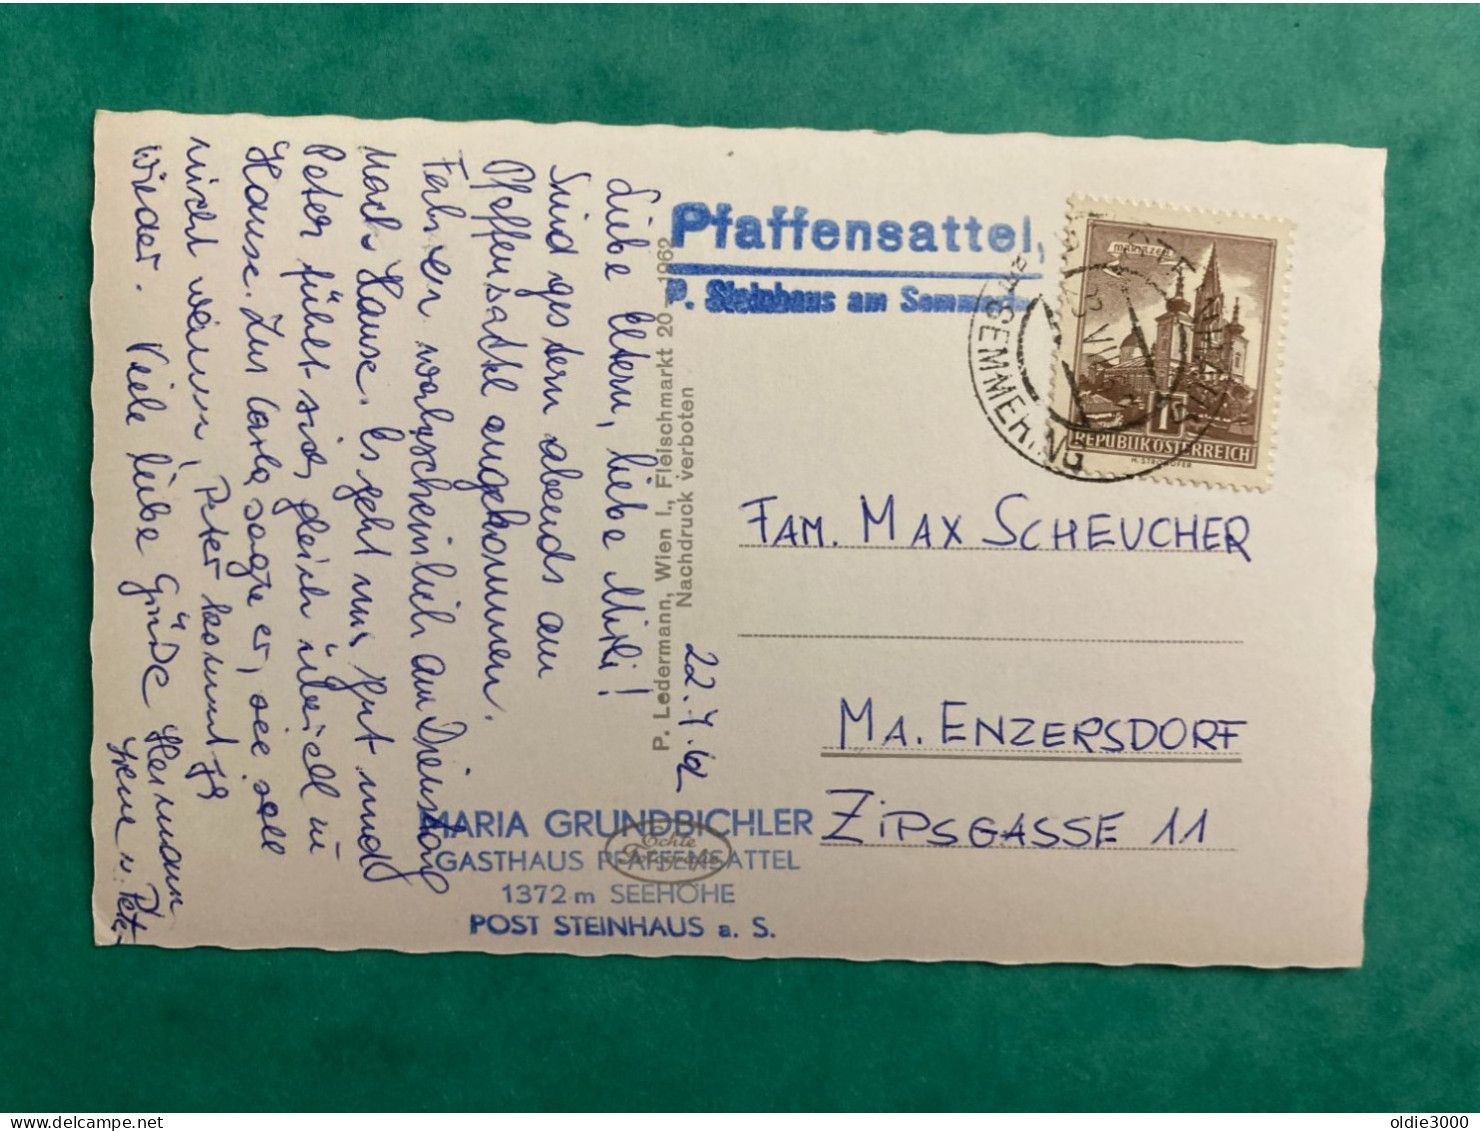 Liebe Eltern, liebe Mitzi!
Sind gestern abends am
Pfaffensattl angekommen.
Fahren warhscheinlich am Dienstag
nach Hause. Es geht uns gut und
Peter fühlt sich gleich überall zu
Hause. Zur Carla sagte er, sie soll
nicht weinen, Peter kommt ja
wieder. Viele liebe Grüße Hermann
Irene u. Peter
22.7.62
P. Ledermann, Wien I., Fleischmarkt 20 – 1962
Nachdruck verboten
Echte
Pfaffensattel,
P. Steinhaus am Semmering
MARIAZELL
1S
REPUBLIK ÖSTERREICH
H. STROHOFER
STEINHAUS
SEMMERING
FAM. MAX SCHEUCHER
MA. ENZERSDORF
ZIPSGASSE 11
MARIA GRUNDBICHLER
GASTHAUS PFAFFENSATTEL
1372 m SEEHÖHE
POST STEINHAUS a. S.
oldie3000